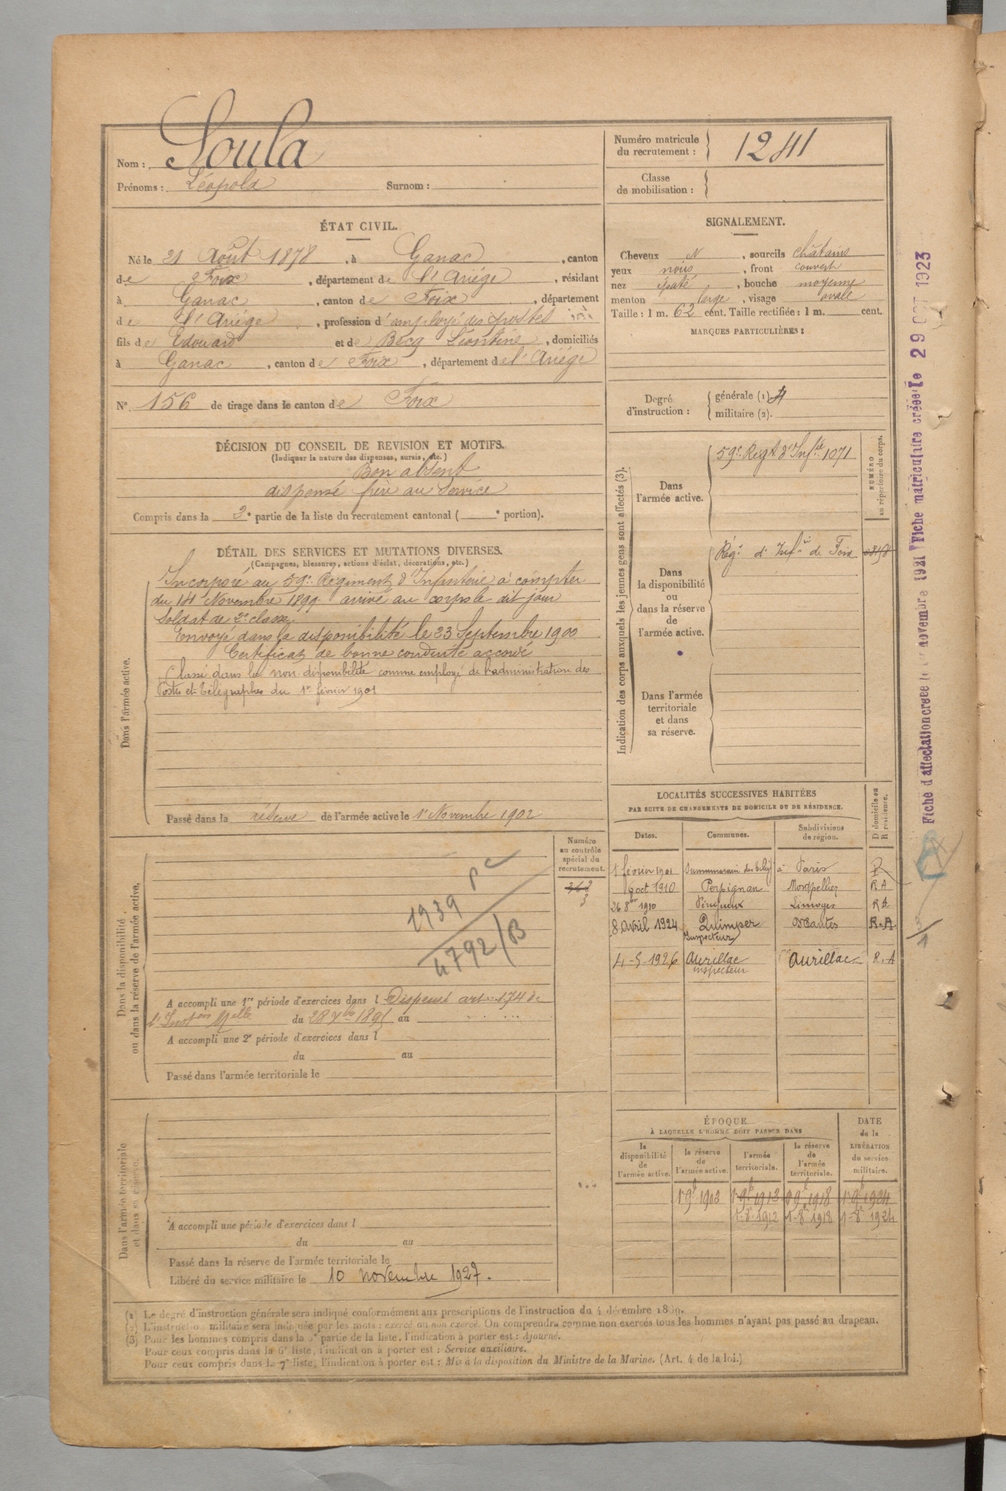 Nom : Soula
Prénoms : Léopold Surnom :
Numéro matricule du recrutement : 1241
Classe de mobilisation :
ÉTAT CIVIL.
Né le 21 Août 1878, à Ganac, canton
de Foix, département de l'Ariège, résidant
à Ganac, canton de Foix, département
de l'Ariège, profession d'employé des postes
fils de Edouard et de Becq Léontine, domiciliés
à Ganac, canton de Foix, département de l'Ariège
N° 156 de tirage dans le canton de Foix
SIGNALEMENT.
Cheveux N, sourcils châtains
yeux noirs, front couvert
nez épaté, bouche moyenne
menton large, visage ovale
Taille : 1 m. 62 cent. Taille rectifiée : 1 m. cent.
MARQUES PARTICULIÈRES :
Degré d'instruction : générale (1) 4
militaire (2).
DÉCISION DU CONSEIL DE REVISION ET MOTIFS.
(Indiquer la nature des dispenses, sursis, etc.)
Bon absent
dispensé frère au service
Compris dans la 2e partie de la liste du recrutement cantonal ( e portion).
DÉTAIL DES SERVICES ET MUTATIONS DIVERSES.
(Campagnes, blessures, actions d'éclat, décorations, etc.)
Dans l'armée active.
Incorporé au 59e Régiment d'Infanterie à compter
du 14 Novembre 1899 arrivé au corps le dit jour
Soldat de 2e classe
Envoyé dans la disponibilité le 23 Septembre 1900
Certificat de bonne conduite accordé
Classé dans la non-disponibilité comme employé de l'administration des
Postes et télégraphes du 1er février 1901
Passé dans la réserve de l'armée active le 1er Novembre 1902
Indication des corps auxquels les jeunes gens sont affectés (3).
NUMÉRO au répertoire du corps.
Dans l'armée active.
59e Regt d'Infrie 1071
Dans la disponibilité ou dans la réserve de l'armée active.
Régt d'Infrie de Foix
Dans l'armée territoriale et dans sa réserve.
LOCALITÉS SUCCESSIVES HABITÉES
PAR SUITE DE CHANGEMENTS DE DOMICILE OU DE RÉSIDENCE.
Dates. Communes. Subdivisions de région. D domicile ou R résidence.
1 février 1901 à Paris R
oct 1910 Perpignan Montpellier R.A
26 8bre 1910 Périgueux Limoges R.A
8 avril 1924 Quimper Nantes R.A
Inspecteur
4-5-1926 Aurillac Aurillac R.A
inspecteur
Dans la disponibilité ou dans la réserve de l'armée active.
Numéro au contrôle spécial du recrutement.
1939
4792/B
A accompli une 1re période d'exercices dans l Dispensé art. 174 de
l'Instion Melle du 28 Xbre 1895 au
A accompli une 2e période d'exercices dans l
du au
Passé dans l'armée territoriale le
Dans l'armée territoriale et dans sa réserve.
A accompli une période d'exercices dans l
du au
Passé dans la réserve de l'armée territoriale le
Libéré du service militaire le 10 novembre 1927.
ÉPOQUE
À LAQUELLE L'HOMME DOIT PASSER DANS
DATE de la LIBÉRATION du service militaire.
la disponibilité de l'armée active. la réserve de l'armée active. l'armée territoriale. la réserve de l'armée territoriale.
1-8-1912 1-8-1918 1-8-1924
(1) Le degré d'instruction générale sera indiqué conformément aux prescriptions de l'instruction du 4 décembre 1889.
(2) L'instruction militaire sera indiquée par les mots : exercé ou non exercé. On comprendra comme non exercés tous les hommes n'ayant pas passé au drapeau.
(3) Pour les hommes compris dans la 5e partie de la liste, l'indication à porter est : djourné.
Pour ceux compris dans la 6e liste, l'indication à porter est : Service auxiliaire.
Pour ceux compris dans la 7e liste, l'indication à porter est : Mis à la disposition du Ministre de la Marine. (Art. 4 de la loi.)
Fiche d'affectation créée le novembre 1921
Fiche matriculaire créée le 29 OCT 1923